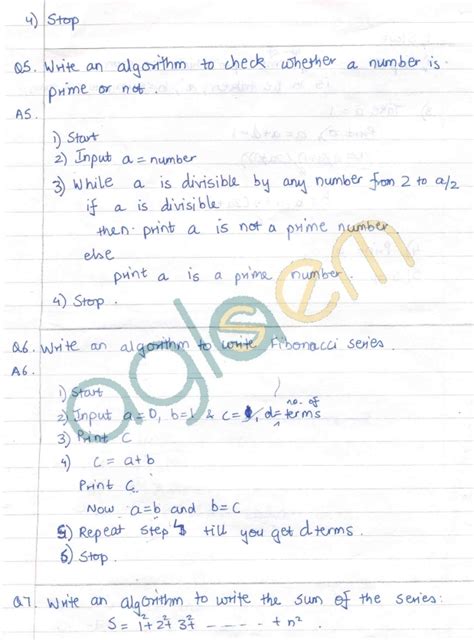 4) Stop
Q5. Write an algorithm to check whether a number is
prime or not.
A5.
1) Start
2) Input a = number
3) While a is divisible by any number from 2 to a/2
if a is divisible
then print a is not a prime number.
else
print a is a prime number.
4) Stop.
aglasem
Q6. Write an algorithm to write Fibonacci series.
A6.
1) Start
no. of
2) Input a = 0, b=1 & c= , d= terms
3) Print C
4) c = a+b
Print C
Now a=b and b=c
5) Repeat step 4 till you get d terms.
6) Stop.
Q7. Write an algorithm to write the sum of the series:
S = 1²+ 2²+ 3²+ - - - - - + n².